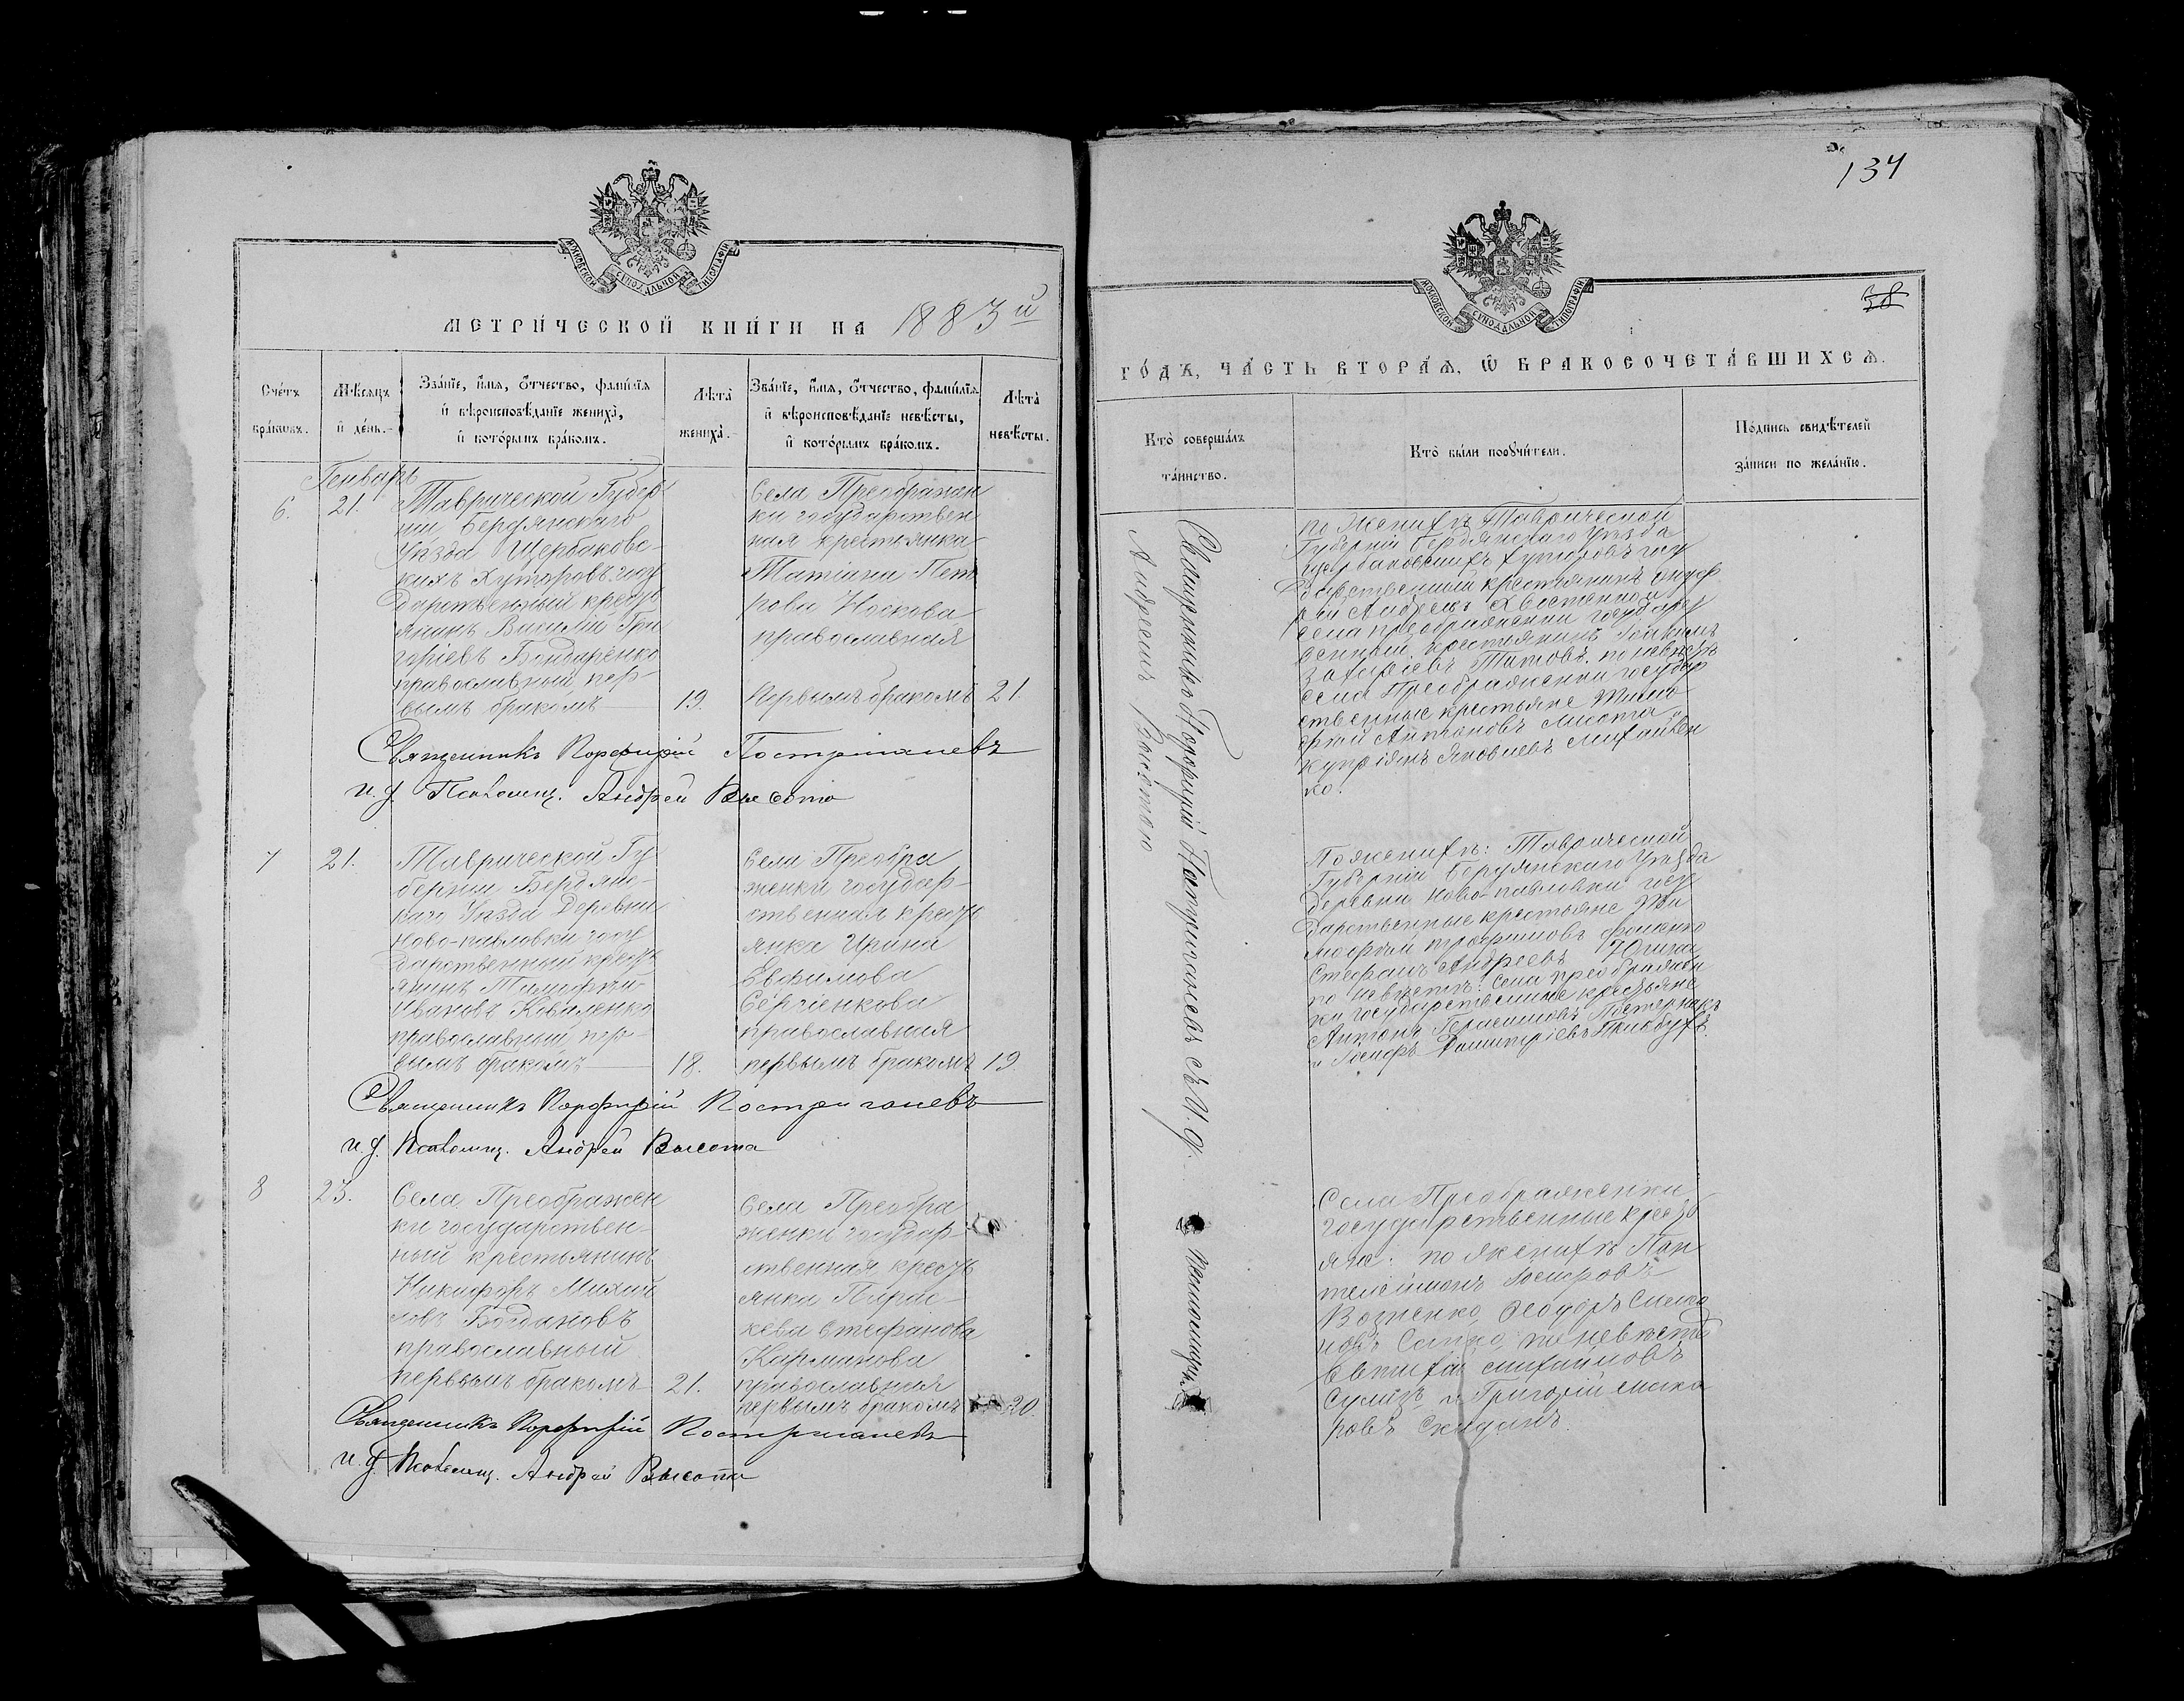 МОСКОВСКОЙ СУНОДАЛЬНОЙ ТИПОГРАФІИ
МЕТРИ́ЧЕСКОЙ КНИ́ГИ НА 1883й
Сче́тъ бра́ковъ.
Мѣ́сяцъ и҆ де́нь.
Зва́нїе, и҆́мя, ѻ҆́тчество, фамилїя и҆ вѣроисповѣ́данїе жениха̀, и҆ кото́рымъ бра́комъ.
Лѣ́та жениха̀.
Зва́нїе, и҆́мя, ѻ҆́тчество, фамилїя и҆ вѣроисповѣ́данїе невѣ́сты, и҆ кото́рымъ бра́комъ.
Лѣ́та невѣ́сты.
Генварь
6.
21.
Таврической Губер
нии Бердянскаго
Уѣзда Щербаковс-
кихъ Хуторовъ госу
дарственный кресть
янинъ Василій Гри
горіевъ Бондаренко
православный пер-
вымъ бракомъ
19.
Села Преображен
ки государствен
ная крестьянка
Татіана Пет
рова Носкова
православная
Первымъ бракомъ
21.
Священникъ Порфирій Постригачевъ
И. д. Псаломщ. Андрей Высота
7
21.
Таврической Гу
берніи Бердянс-
каго Уѣзда Деревни
Ново-павловки госу
дарственный кресть
янинъ Тимофей
Ивановъ Коваленко
православный пер-
вымъ бракомъ
18.
Села Преобра
женки государ-
ственная кресть
янка Ирина
Евфимова
Сергіенкова
православная
первымъ бракомъ
19
Священникъ Порфирій Постригачевъ
И. д. Псаломщ. Андрей Высота
8
23.
Села Преображен
ки государствен-
ный крестьянинъ
Никифоръ Михай
ловъ Богдановъ
православный
первымъ бракомъ
21.
Села Преобра
женки государ-
ственная кресть
янка Парас-
кева Стефанова
Карманова
православная
первымъ бракомъ
20.
Священникъ Порфирій Постригачевъ
И. д. Псаломщ. Андрей Высота
134
38
МОСКОВСКОЙ СУНОДАЛЬНОЙ ТИПОГРАФІИ
ГО́ДЪ, ЧА́СТЬ ВТОРА́Я, Ѽ БРАКОСОЧЕТА́ВШИХСЯ.
Кто̀ соверша́лъ та́инство.
Кто̀ бы́ли поꙋчи́тели.
По́дпись свидѣ́телей за́писи по жела́нїю.
Священникъ Порфирій Постригачевъ съ И. д. псаломщика
Андреемъ Высотою
по Женихѣ Таврической
Губерніи Бердянскаго Уѣзда
Щербаковскихъ хуторовъ госу
дарственный крестьянинъ
Андреевъ
села Преображенки государст
венный крестьянинъ
Захаріевъ Титовъ. по невѣстѣ
села Преображенки государ
ственные крестьяне Тимо
фей Антоновъ
Купріянъ Яковлевъ Михайлен
ко.
По женихѣ: Таврической
Губерніи Бердянскаго Уѣзда
Деревни Ново-павловки госу
дарственные крестьяне Ти
мофей Трофимовъ Фоменко
Стефанъ Андреевъ
по невѣстѣ: села преображен
ки государственные крестьяне
Антонъ Герасимовъ Пастернакъ
и Іосифъ Димитріевъ
Села Преображенки
государственные кресть
яне: по женихѣ Пан
телеймонъ Іосифовъ
Возненко, Ѳеодоръ
по невѣстѣ
Евтихій Михайловъ
и Григорій Мака
ровъ